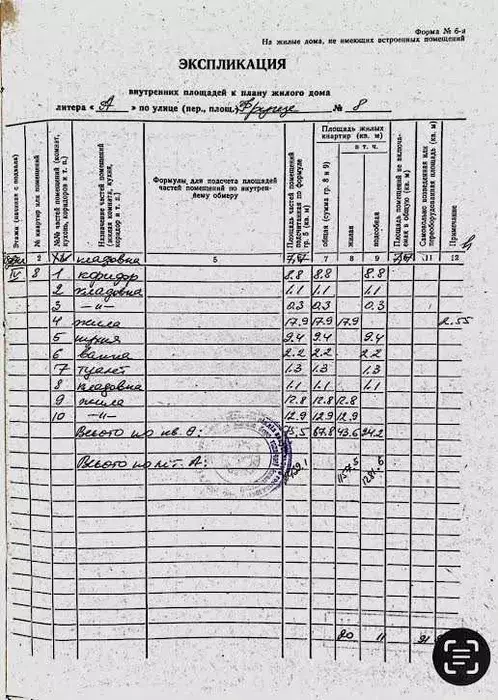 Форма № 6-а
На жилые дома, не имеющих встроенных помещений
ЭКСПЛИКАЦИЯ
внутренних площадей к плану жилого дома
литера « А » по улице (пер., площ.) Фрунзе № 8
Этажи (начиная с подвала)
№ квартир или помещений
№№ частей помещений (комнат, кухонь, коридоров и т. п.)
Назначение частей помещений (жилая комната, кухня, коридор и т. п.)
Формулы для подсчета площадей частей помещений по внутреннему обмеру
Площадь частей помещений подсчитанная по формуле гр. 5 (кв. м)
Площадь жилых квартир (кв. м)
общая (сумма гр. 8 и 9)
в т. ч.
жилая
подсобная
Площадь помещений не включаемая в общую (кв. м)
Самовольно возведенная или переоборудованная площадь (кв. м)
Примечание
2 5 7 8 9 11 12
кладовка 7,7 7,7
IV 8 1 коридор 8.8 8.8 8.8
2 кладовка 1.1 1.1 1.1
3 —"— 0.3 0.3 0.3
4 жила 17.9 17.9 17.9 2.55
5 кухня 9.4 9.4 9.4
6 ванна 2.2 2.2 2.2
7 туалет 1.3 1.3 1.3
8 кладовка 1.1 1.1 1.1
9 жила 12.8 12.8 12.8
10 —"— 12.9 12.9 12.9
Всего по кв. 67.8 43.6 24.2
Всего по лит. А: 1157.5 1281.6
20 11 21